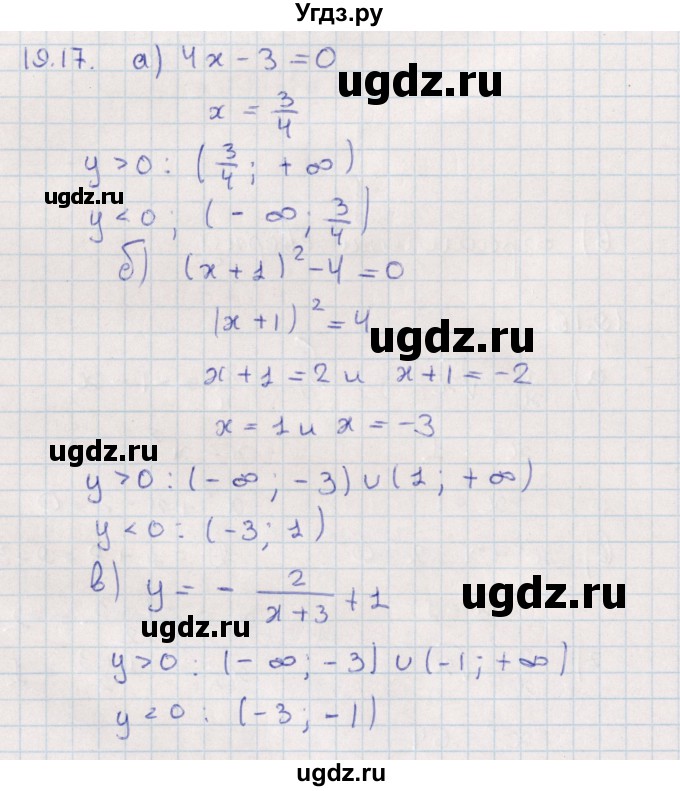 Угдз.ру
19.17. а) 4x - 3 = 0
ugdz.ru
x = 3/4
y > 0 : (3/4; + ∞)
ugdz.ru
y < 0 ; (- ∞; 3/4)
б) (x + 1)² - 4 = 0
(x + 1)² = 4
ugdz.ru
x + 1 = 2 и x + 1 = -2
x = 1 и x = -3
ugdz.ru
y > 0 : (- ∞; -3) ∪ (1; + ∞)
y < 0 : (-3; 1)
в) y = - 2/(x + 3) + 1
ugdz.ru
ugdz.ru
y > 0 : (- ∞; -3) ∪ (-1; + ∞)
y < 0 : (-3; -1)
ugdz.ru